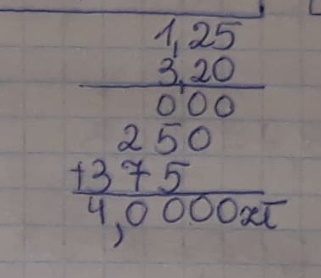 1,25
3,20
000
250
+375
4,0000zł